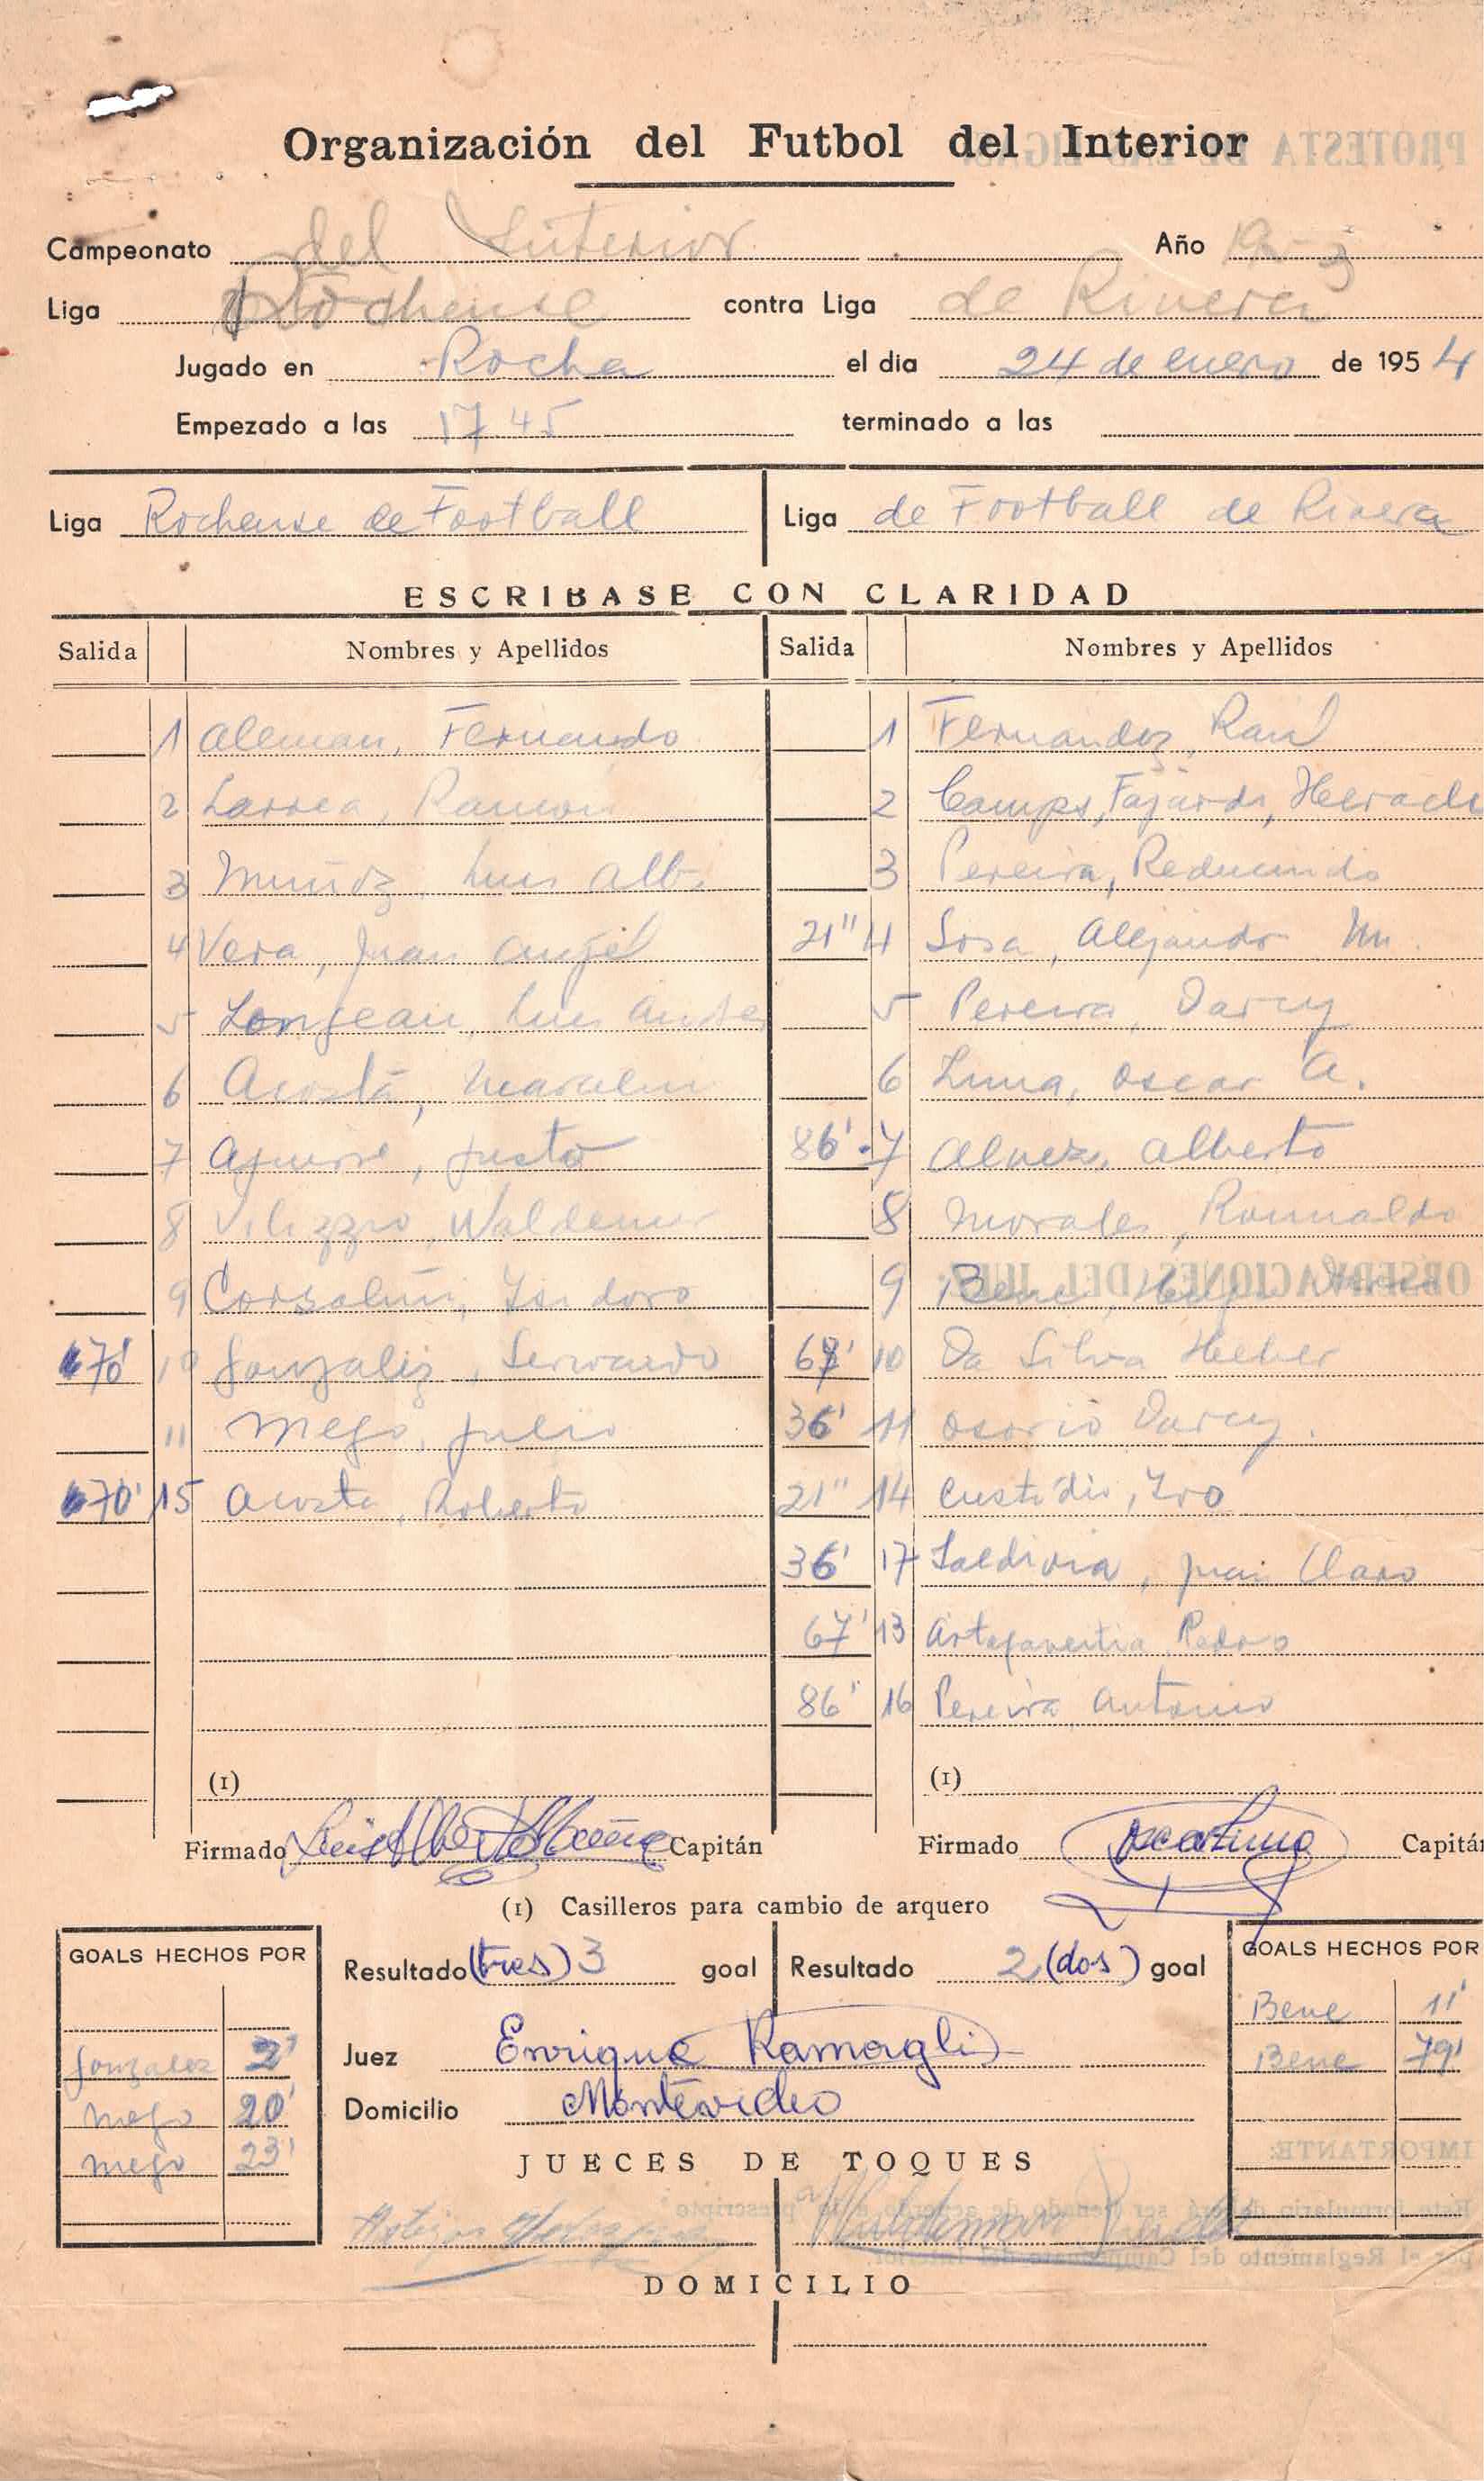 Organización del Futbol del Interior
Campeonato del Interior Año 1953
Liga Rochense contra Liga de Rivera
Jugado en Rocha el dia 24 de enero de 1954
Empezado a las 17 45 terminado a las
Liga Rochense de Football Liga de Football de Rivera
ESCRIBASE CON CLARIDAD
Salida Nombres y Apellidos Salida Nombres y Apellidos
1 Aleman, Fernando 1 Fernandez, Raul
2 Larrea, Ramon 2 Camps, Fajardo, Heracle
3 Muñoz, Luis Alb. 3 Pereira, Redumindo
4 Vera, Juan Angel 21" 4 Sosa, Alejandro M.
5 Lonjean, Luis 5 Pereira, Darcy
6 Acosta, Marcelino 6 Luna, Oscar A.
7 Aguirre, Justo 86' 7 Alvez, Alberto
8 Vilizzio, Waldemar 8 Morales, Romualdo
9 Isidoro 9 Bene, Hugo
70' 10 Gonzalez, Servando 67' 10 Da Silva Heber
11 Mego, Julio 36' 11 Osorio Darcy.
70' 15 Acosta, Roberto 21" 14 Custodio, Iro
36' 17 Saldivia, Juan Claro
67' 13 Artagaveitia Pedro
86' 16 Pereira Antonio
(1) (1)
Firmado Luis Alberto Muñoz Capitán Firmado Oscar Luna Capitá
(1) Casilleros para cambio de arquero
GOALS HECHOS POR Resultado (tres) 3 goal Resultado 2 (dos) goal GOALS HECHOS POR
Bene 11'
Gonzalez 2' Juez Enrique Ramagli Bene 79'
Mego 20' Domicilio Montevideo
Mego 23' JUECES DE TOQUES
DOMICILIO